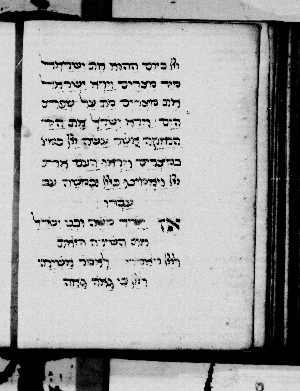 ביום ההוא את ישראל
מיד מצרים וירא ישראל
את מצרים מת על שפת
הים וירא ישראל את היד
הגדולה אשר עשה ביי
במצרים וייראו העם את
ויאמינו ביי ובמשה עב
עבדו
אז ישיר משה ובני ישראל
את השירה הזאת
ויאמרו לאמר אשירה
כי גאה גאה